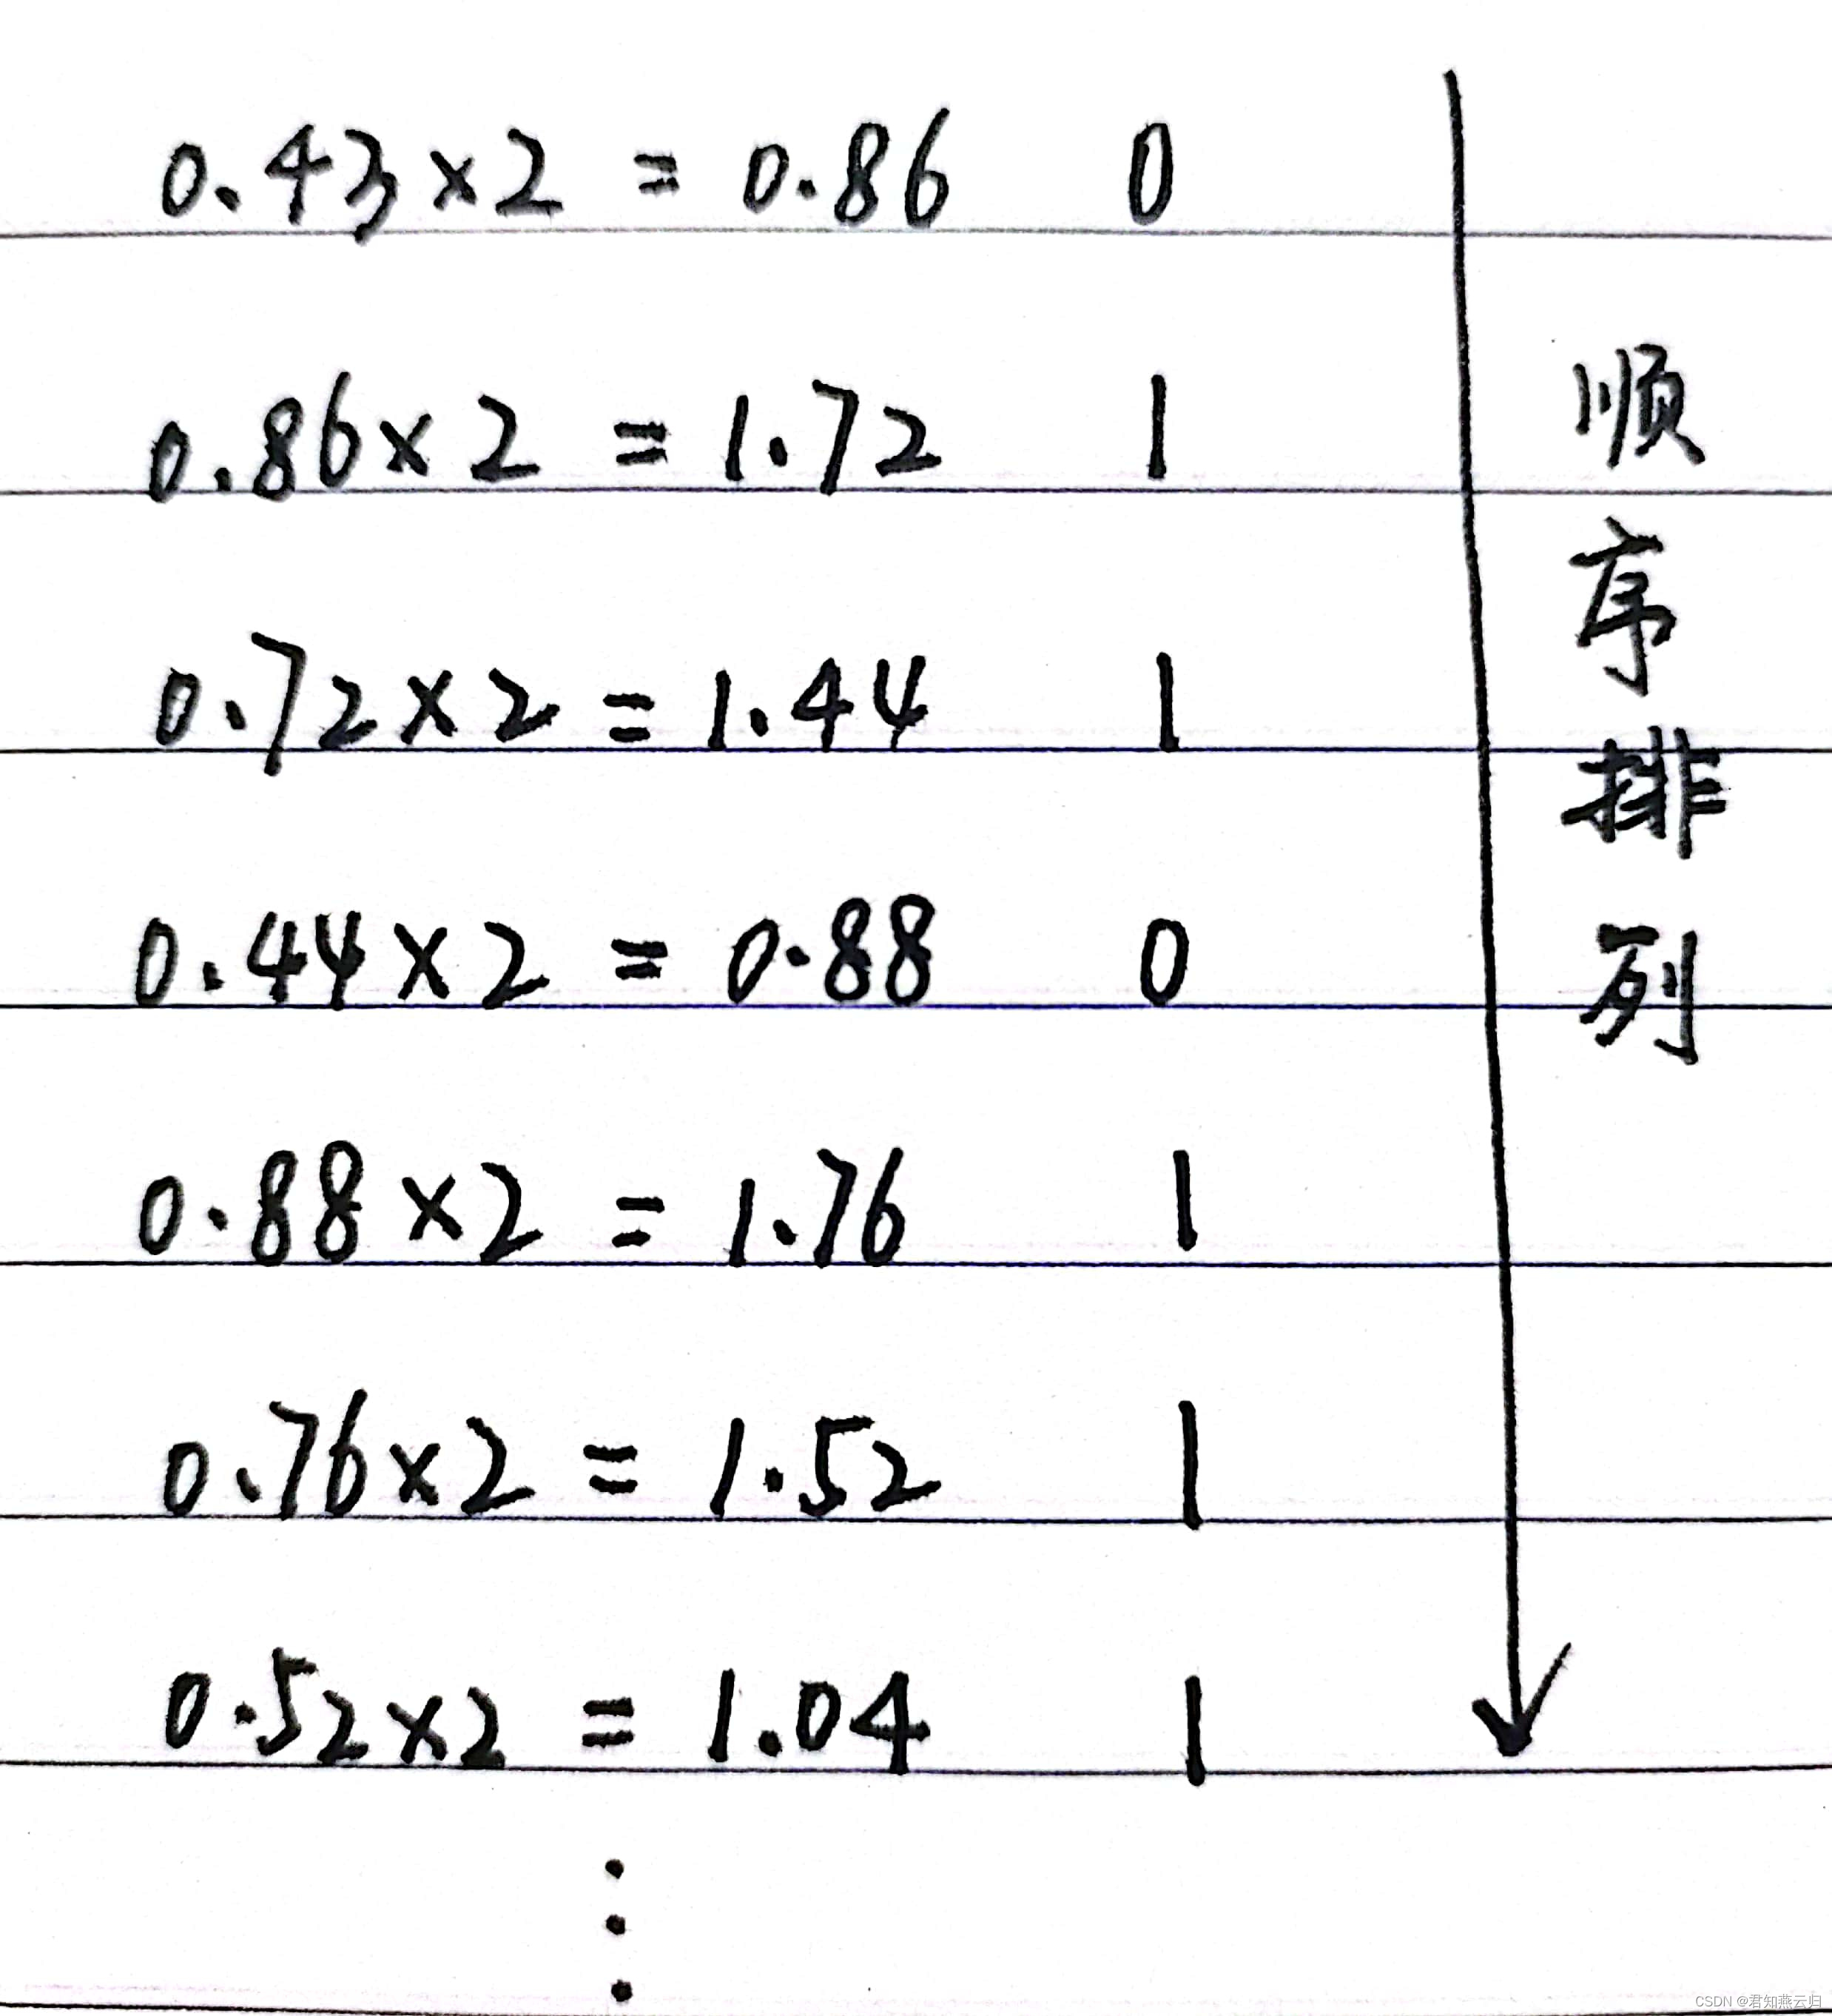 0.43×2 = 0.86 0
0.86×2 = 1.72 1
0.72×2 = 1.44 1
0.44×2 = 0.88 0
0.88×2 = 1.76 1
0.76×2 = 1.52 1
0.52×2 = 1.04 1
顺序排列
CSDN @君知燕云归